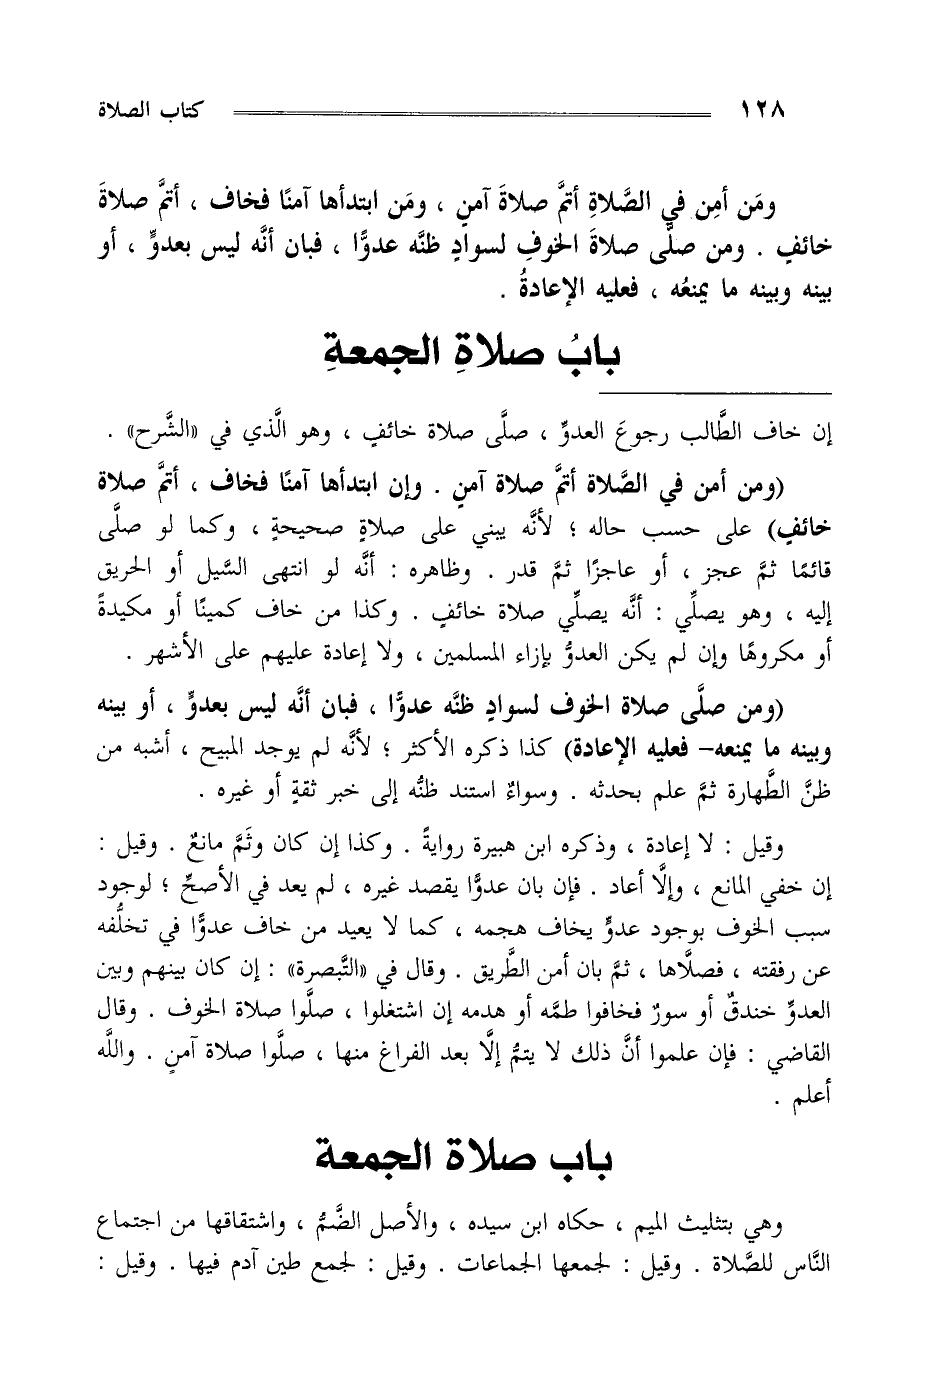 ١٢٨ كتاب الصلاة
ومَن أمِن في الصَّلاةِ أتمَّ صلاةَ آمنٍ ، ومَن ابتدأها آمنًا فخاف ، أتمَّ صلاةَ
خائفٍ . ومن صلَّى صلاةَ الخوفِ لسوادٍ ظنَّه عدوًّا ، فبان أنَّه ليس بعدوٍّ ، أو
بينه وبينه ما يمنعُه ، فعليه الإعادةُ .
بابُ صلاةِ الجمعةِ
إن خاف الطَّالب رجوعَ العدوِّ ، صلَّى صلاة خائفٍ ، وهو الَّذي في «الشَّرح» .
(ومن أمن في الصَّلاة أتمَّ صلاة آمنٍ . وإن ابتدأها آمنًا فخاف ، أتمَّ صلاة
خائفٍ) على حسب حاله ؛ لأنَّه يبني على صلاةٍ صحيحةٍ ، وكما لو صلَّى
قائمًا ثمَّ عجز ، أو عاجزًا ثمَّ قدر . وظاهره : أنَّه لو انتهى السَّيل أو الحريق
إليه ، وهو يصلِّي : أنَّه يصلِّي صلاة خائفٍ . وكذا من خاف كمينًا أو مكيدةً
أو مكروهًا وإن لم يكن العدوُّ بإزاء المسلمين ، ولا إعادة عليهم على الأشهر .
(ومن صلَّى صلاة الخوف لسوادٍ ظنَّه عدوًّا ، فبان أنَّه ليس بعدوٍّ ، أو بينه
وبينه ما يمنعه- فعليه الإعادة) كذا ذكره الأكثر ؛ لأنَّه لم يوجد المبيح ، أشبه من
ظنَّ الطَّهارة ثمَّ علم بحدثه . وسواءٌ استند ظنُّه إلى خبر ثقةٍ أو غيره .
وقيل : لا إعادة ، وذكره ابن هبيرة روايةً . وكذا إن كان وثَمَّ مانعٌ . وقيل :
إن خفي المانع ، وإلَّا أعاد . فإن بان عدوًّا يقصد غيره ، لم يعد في الأصحِّ ؛ لوجود
سبب الخوف بوجود عدوٍّ يخاف هجمه ، كما لا يعيد من خاف عدوًّا في تخلُّفه
عن رفقته ، فصلَّاها ، ثمَّ بان أمن الطَّريق . وقال في «التَّبصرة» : إن كان بينهم وبين
العدوِّ خندقٌ أو سورٌ فخافوا طمَّه أو هدمه إن اشتغلوا ، صلَّوا صلاة الخوف . وقال
القاضي : فإن علموا أنَّ ذلك لا يتمُّ إلَّا بعد الفراغ منها ، صلَّوا صلاة آمنٍ . واللَّه
أعلم .
باب صلاة الجمعة
وهي بتثليث الميم ، حكاه ابن سيده ، والأصل الضَّمُّ ، واشتقاقها من اجتماع
النَّاس للصَّلاة . وقيل : لجمعها الجماعات . وقيل : لجمع طين آدم فيها . وقيل :